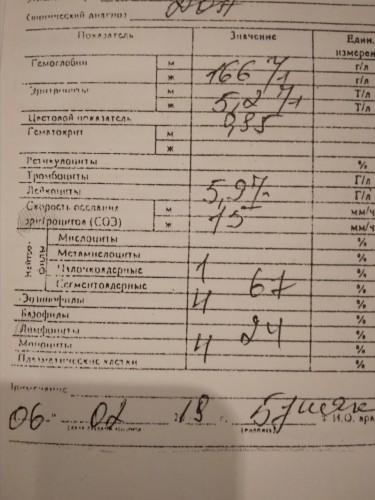 Клинический диагноз
Показатель Значение Един. измерен
Гемоглобин м ж 166 г/л г/л г/л
Эритроциты м ж 5,2 т/л Т/л Т/л
Цветовой показатель 0,95
Гематокрит м ж
Ретикулоциты %
Тромбоциты Г/л
Лейкоциты 5,9 Г/л
Скорость оседания эритроцитов (СОЭ) м ж 15 мм/ч мм/ч
Нейтрофилы
Миелоциты %
Метамиелоциты %
Палочкоядерные 1 %
Сегментоядерные 67 %
Эозинофилы 4 %
Базофилы %
Лимфоциты 24 %
Моноциты 4 %
Плазматические клетки %
Примечание
06 02 19 г.
(подпись)